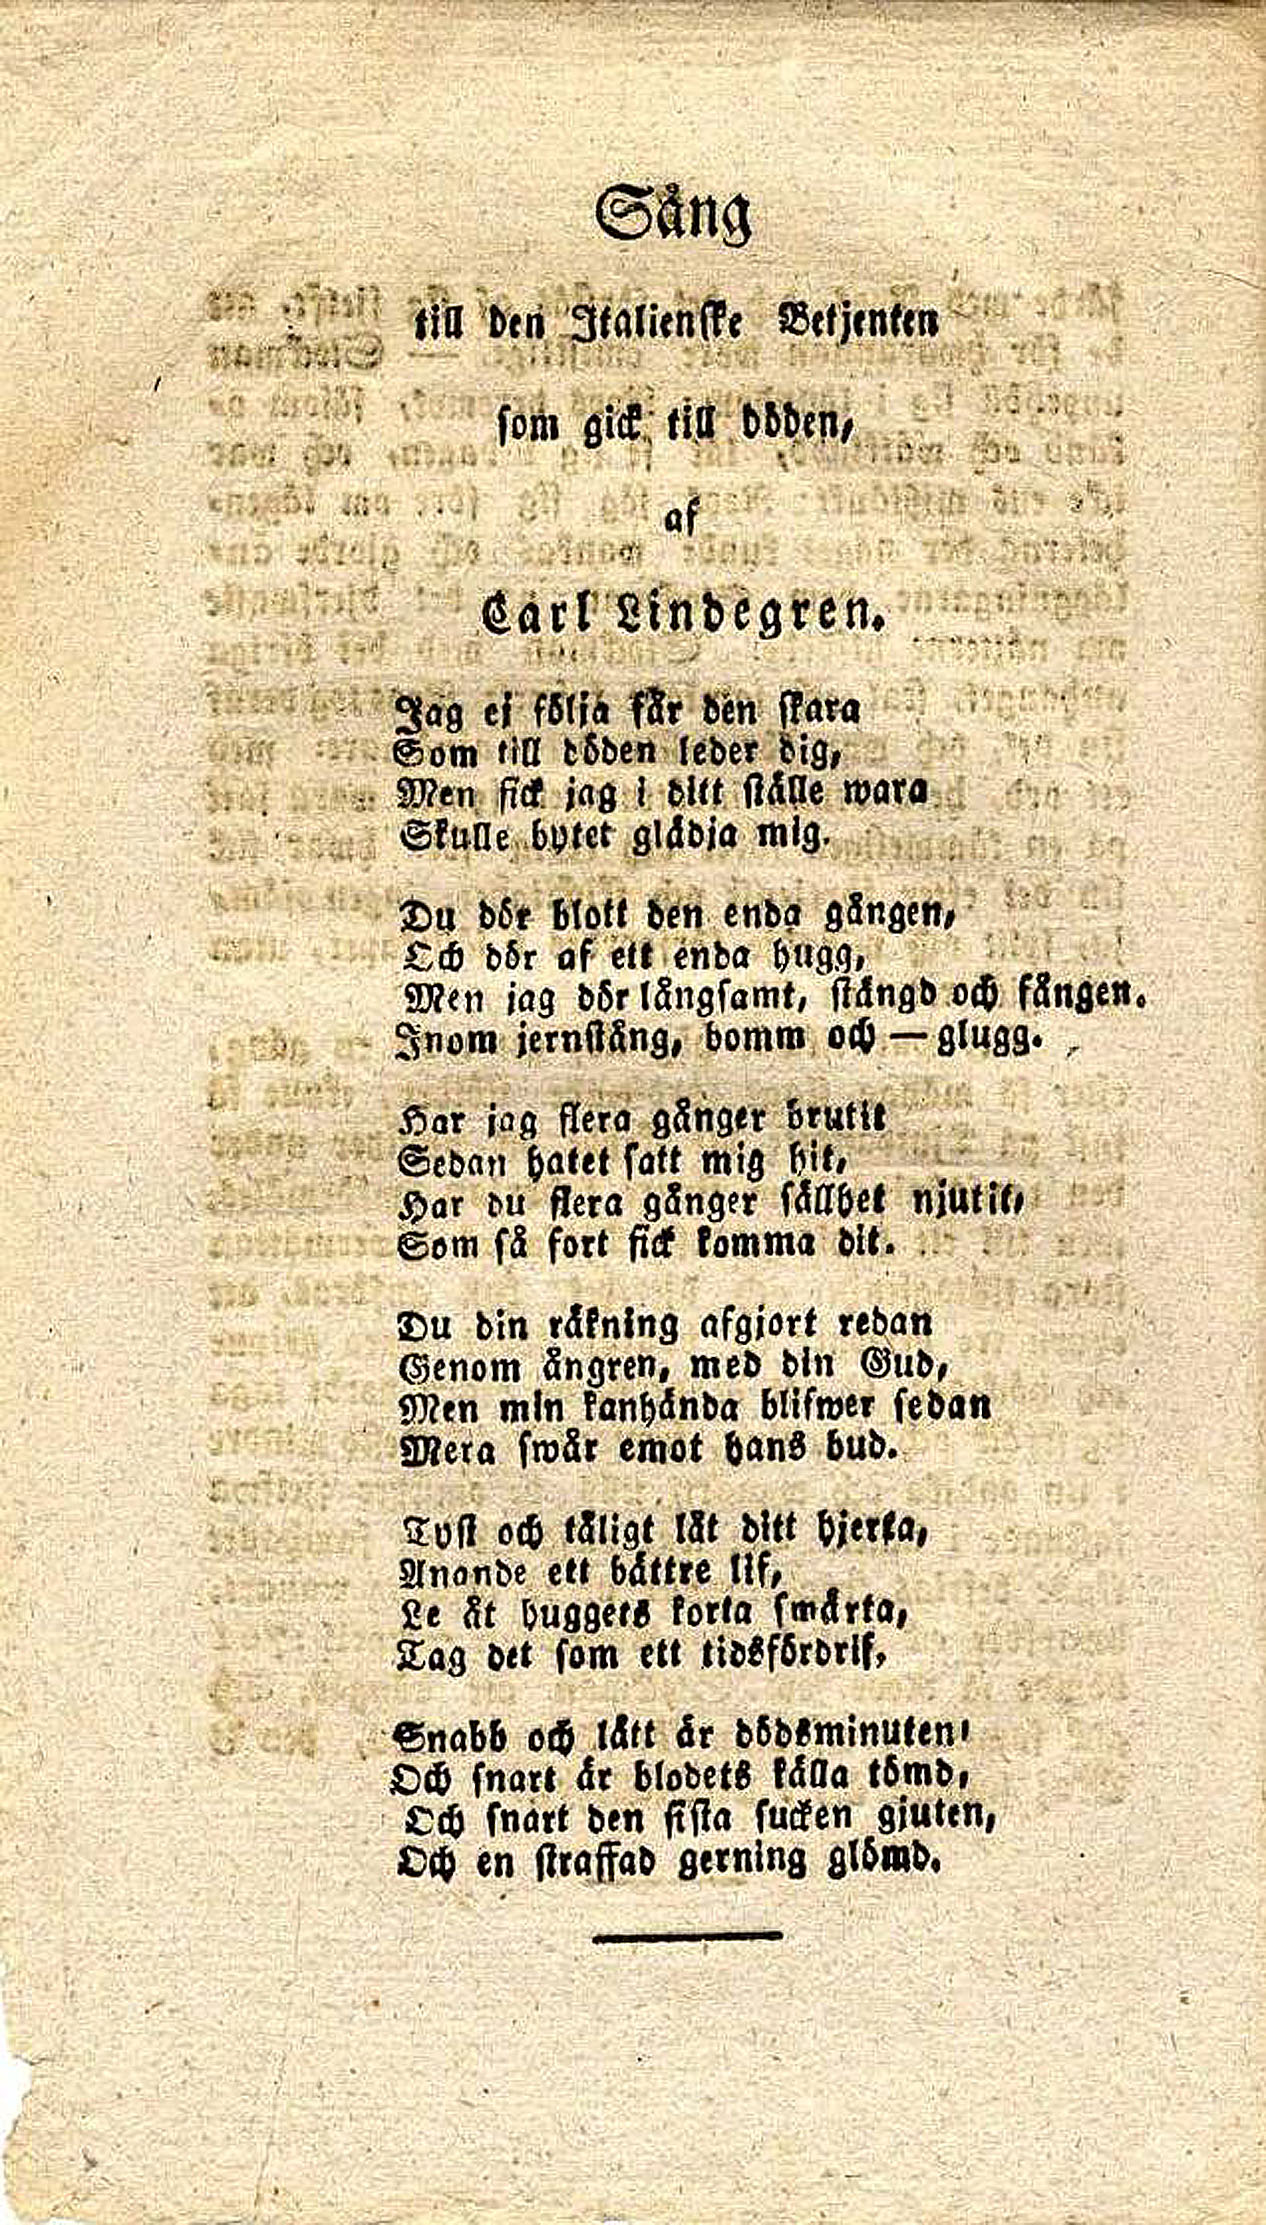 Sång
till den Italienske Betjenten
som gick till döden,
af
Carl Lindegren.
Jag ej följa får den skara
Som till döden leder dig,
Men fick jag i ditt ställe wara
Skulle bytet glädja mig.
Du dör blott den enda gången,
Och dör af ett enda hugg,
Men jag dör långsamt, stängd och fången.
Inom jernstång, bomm och — glugg.
Har jag flera gånger brutit
Sedan hatet satt mig hit,
Har du flera gånger sällhet njutit,
Som så fort fick komma dit.
Du din räkning afgjort redan
Genom ångren, med din Gud,
Men min kanhända blifwer sedan
Mera swår emot hans bud.
Tyst och tåligt låt ditt hjerta,
Anande ett bättre lif,
Le åt huggets korta smärta,
Tag det som ett tidsfördrif,
Snabb och lätt är dödsminuten,
Och snart är blodets källa tömd,
Och snart den sista sucken gjuten,
Och en straffad gerning glömd.